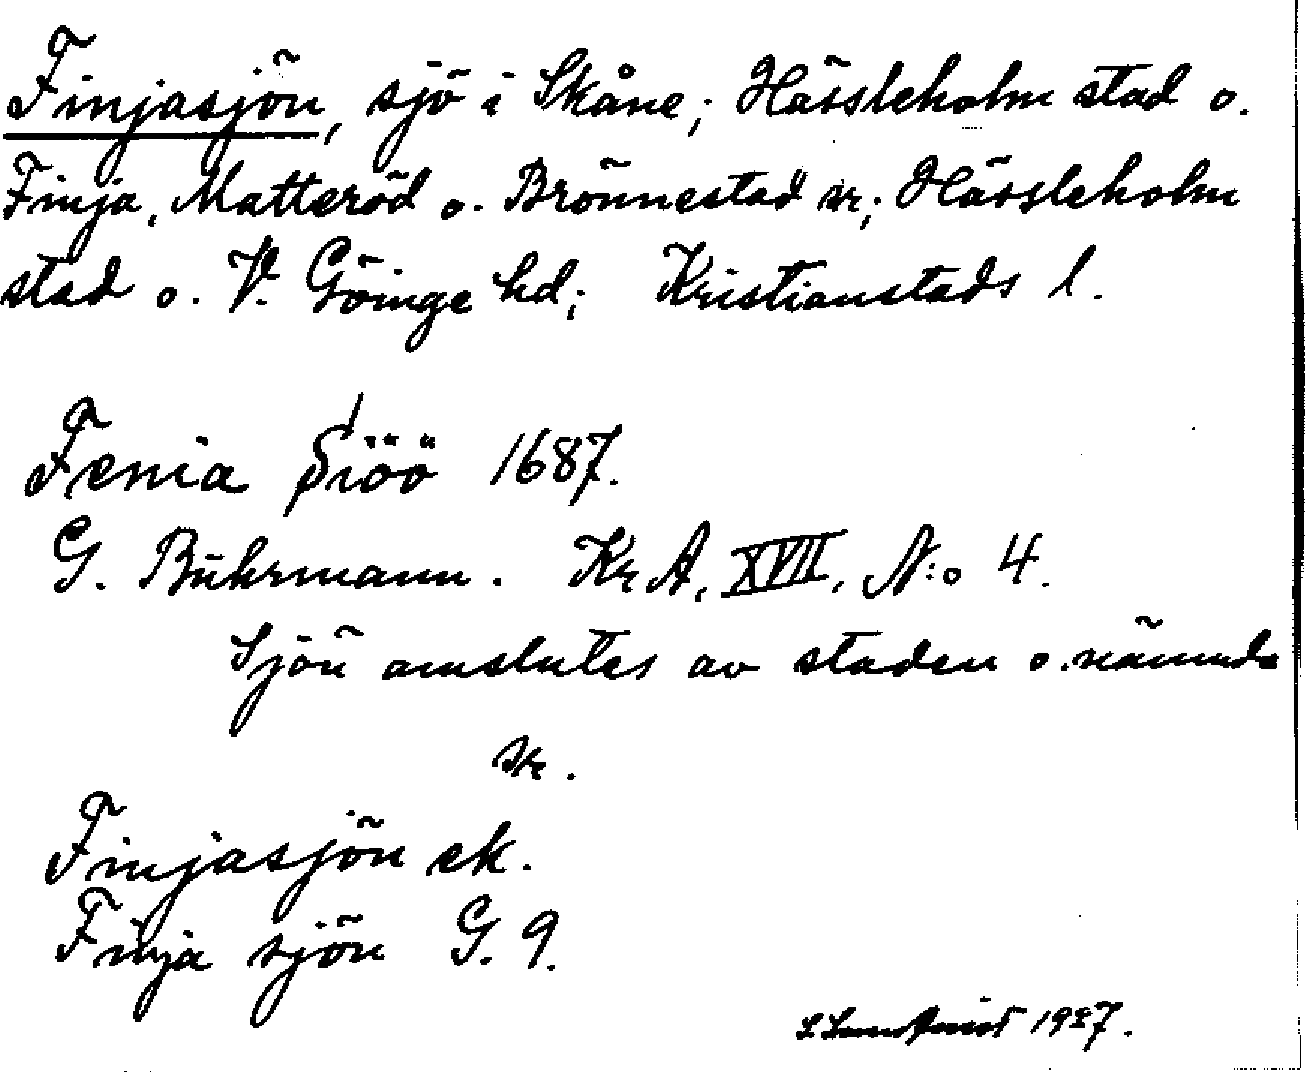 Finjasjön, sjö i Skåne; Hässleholm stad o.
Finja, Matteröd o. Brönnestad sr; Hässleholm
stad o. V. Göinge hd; Kristianstads l.
Fenia Siöö 1687.
G. Buhrmann. Kr A, XVII, N:o 4.
Sjön omslutes av staden o. nämnda
sr.
Finjasjön ek.
Finja sjön G. 9.
1927.